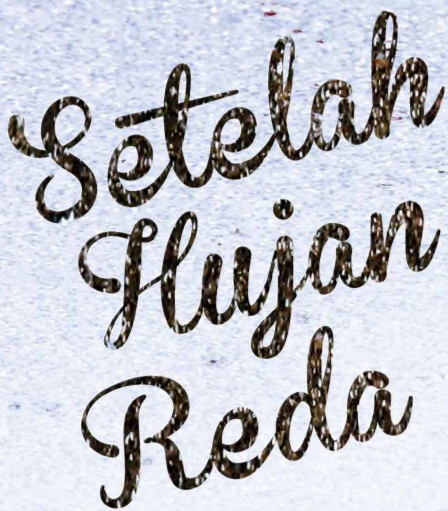 Setelah
Hujan
Reda